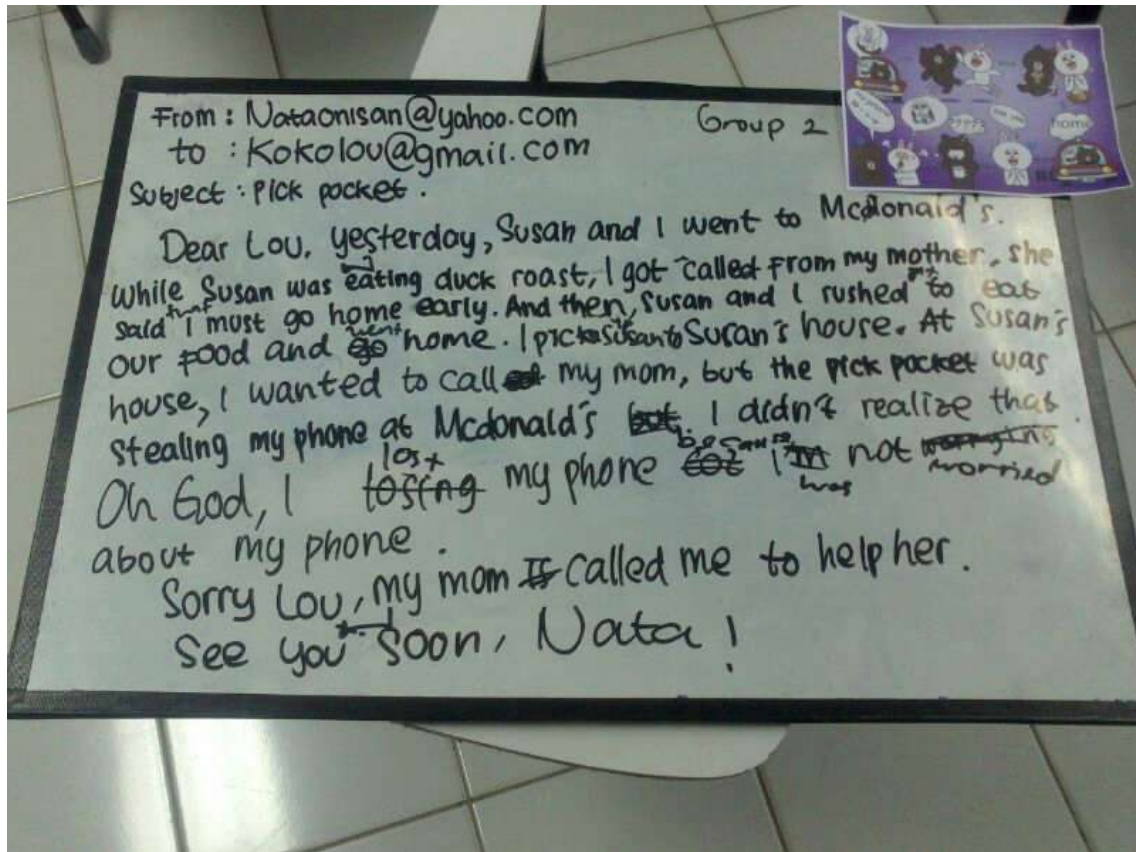 From : Nataonisan@yahoo.com
Group 2
to : Kokolou@gmail.com
Subject : Pick pocket .
Dear Lou, yesterday, Susan and I went to Mcdonald's.
While Susan was eating duck roast, I got called from my mother, she
said that I must go home early. And then, Susan and I rushed to eat
our food and went home. I pick Susan to Susan's house. At Susan's
house, I wanted to call my mom, but the pick pocket was
stealing my phone at Mcdonald's. I didn't realize that.
Oh God, I lost my phone because I was not worried
about my phone.
Sorry Lou, my mom called me to help her.
See you soon, Nata!
home